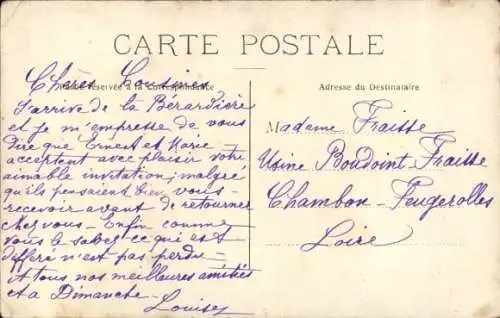 CARTE POSTALE
Partie réservée à la Correspondance
Adresse du Destinataire
Chères Cousines
J'arrive de la Bérardière
et je m'empresse de vous
dire que Ernest et Marie
acceptent avec plaisir votre
aimable invitation; malgré
qu'ils pensaient bien vous
recevoir avant de retourner
chez vous - Enfin comme
vous le savez ce qui est
différé n'est pas perdu -
A tous nos meilleures amitiés
et a Dimanche -
Louise
Madame Fraisse
Usine Boudoint-Fraisse
Chambon-Feugerolles
Loire